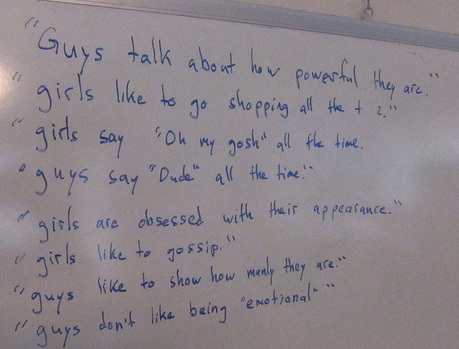 "Guys talk about how powerful they are."
"girls like to go shopping all the t
"girls say "Oh my gosh" all the time.
"guys say "Dude" all the time."
"girls are obsessed with their appearance."
"girls like to gossip."
"guys like to show how manly they are."
"guys don't like being "emotional" "